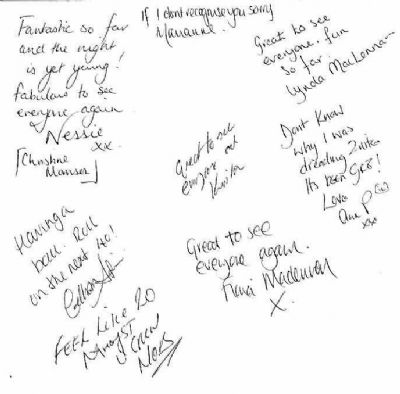 Fantastic so far
and the night
is yet young!
fabulous to see
everyone again
Nessie
xx
[Christine
Manser]
If I dont recognise you sorry
Marianne.
Great to see
everyone. fun
so far.
Lynda MacLennan
Great to see
everyone
Dont Know
why I was
dreading 2nite
Its been Gr8!
Love
xxx
Having a
ball. Roll
on the next
Great to see
everyone again.
X.
FEEL Like 20
AMONGST